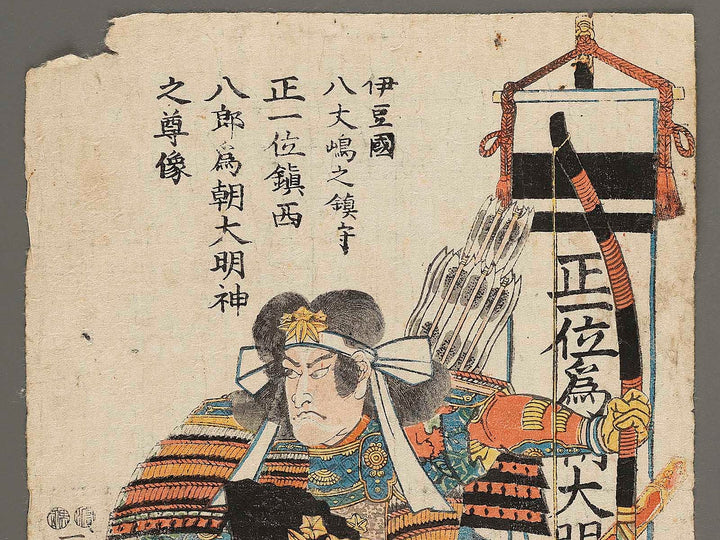 伊豆國
八丈嶋之鎮守
正一位鎮西
八郎為朝大明神
之尊像
正一位為朝大明